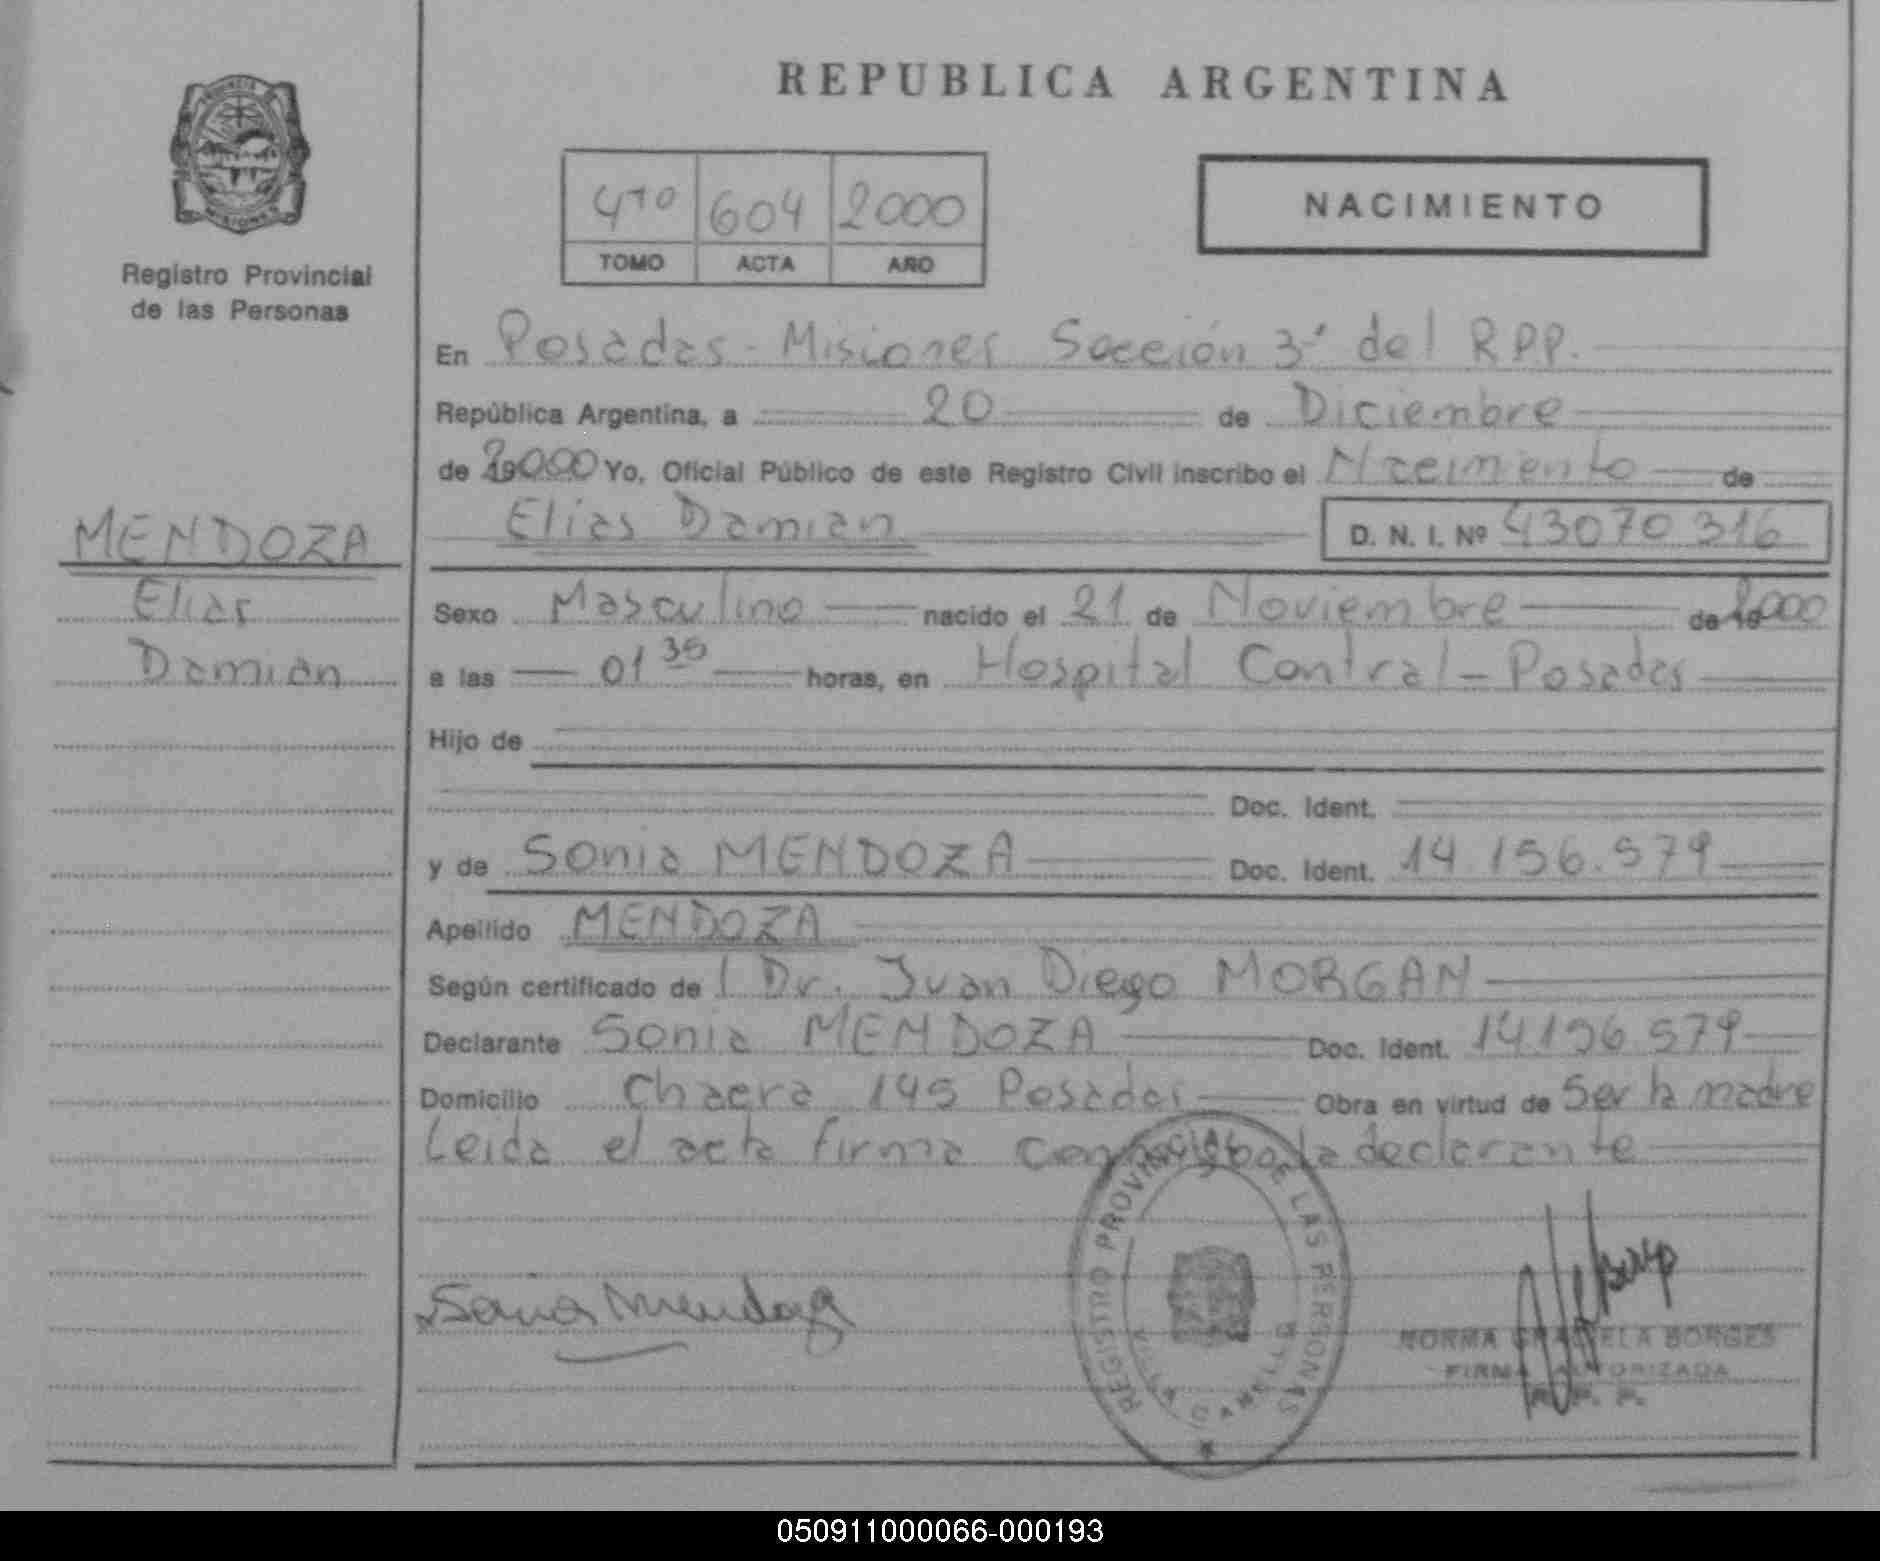 REPUBLICA ARGENTINA
PROVINCIA DE
MISIONES
Registro Provincial
de las Personas
4to 604 2000
TOMO ACTA AÑO
NACIMIENTO
En Posadas - Misiones Sección 3ª del R.P.P.
República Argentina, a 20 de Diciembre
de 2000 Yo, Oficial Público de este Registro Civil inscribo el Nacimiento de
Elias Damian D. N. I. Nº 43070316
MENDOZA
Elias
Damian
Sexo Masculino nacido el 21 de Noviembre de 2000
a las 01 35 horas, en Hospital Central - Posadas
Hijo de
Doc. Ident.
y de Sonia MENDOZA Doc. Ident. 14.156.579
Apellido MENDOZA
Según certificado de l Dr. Juan Diego MORGAN
Declarante Sonia MENDOZA Doc. Ident. 14.156.579
Domicilio Chacra 145 Posadas Obra en virtud de Ser la madre
Leida el acta firma conmigo la declarante
Sonia Mendoza
REGISTRO PROVINCIAL DE LAS PERSONAS
VILLA CABELLO
NORMA GRACIELA BORGES
FIRMA AUTORIZADA
R. P. P.
050911000066-000193